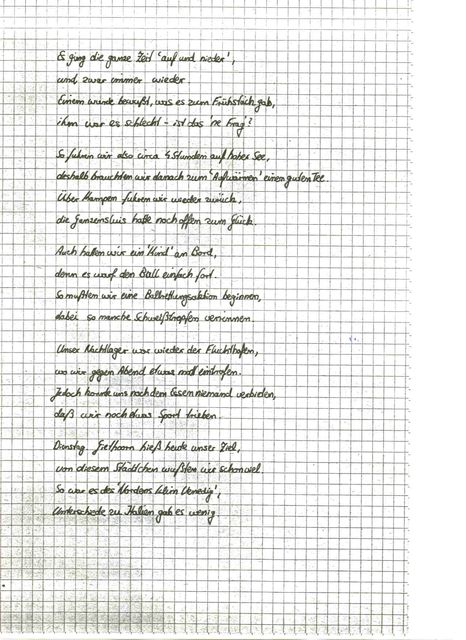 Es ging die ganze Zeit 'auf und nieder',
und zwar immer wieder
Einem wurde bewußt, was es zum Frühstück gab,
ihm war es schlecht - ist das 'ne Frag'?
So fuhren wir also circa 4 Stunden auf hoher See,
deshalb brauchten wir danach zum 'Aufwärmen' einen guten Tee.
Über Kampen fuhren wir wieder zurück,
die Ganzensluis hatte noch offen zum Glück.
Auch hatten wir ein 'Kind' an Bord,
denn es warf den Ball einfach fort.
So mußten wir eine Ballrettungsaktion beginnen,
dabei so manche Schweißtropfen verrinnen.
Unser Nachtlager war wieder der Fluchthafen,
wo wir gegen Abend etwas matt eintrafen.
Jedoch konnte uns nach dem Essen niemand verbieten,
daß wir noch etwas Sport trieben.
Dienstag. Giethoorn hieß heute unser Ziel,
von diesem Städtchen wußten wir schon viel.
So war es des 'Nordens klein Venedig',
Unterschiede zu Italien gab es wenig